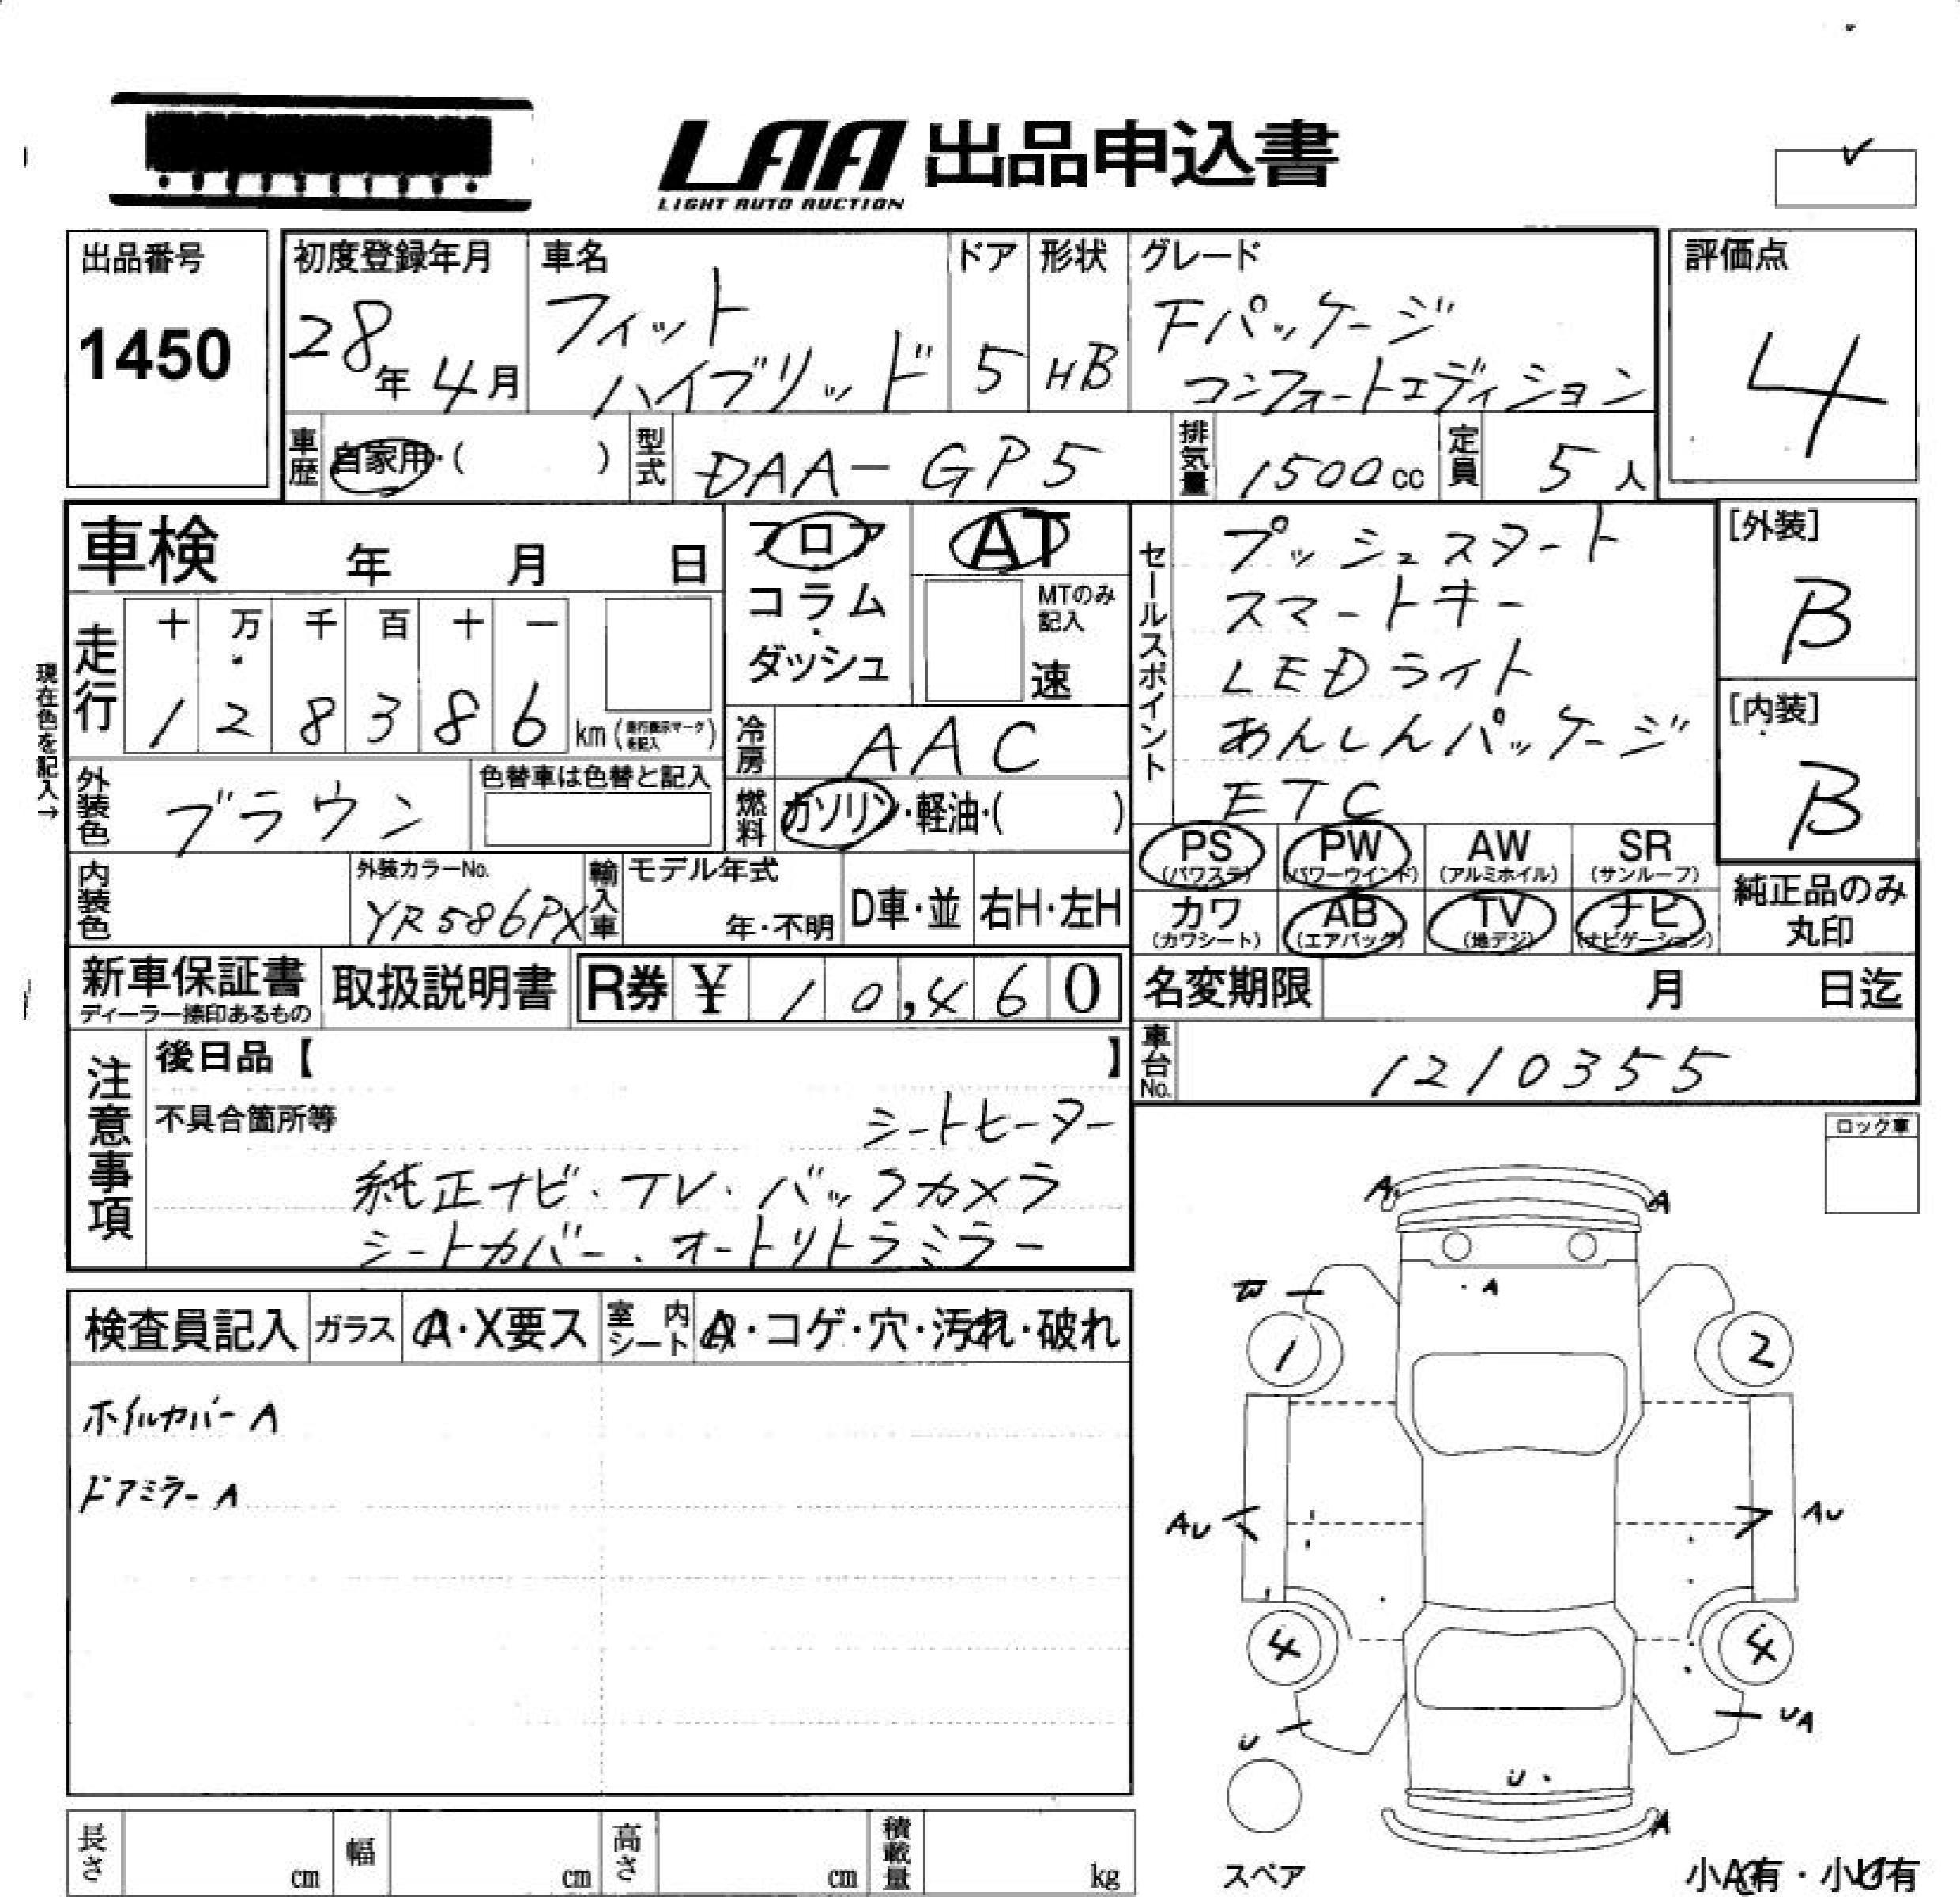 LAA 出品申込書
LIGHT AUTO AUCTION
出品番号
1450
初度登録年月
28年4月
車名
フィット
ハイブリッド
ドア
5
形状
HB
グレード
Fパッケージ
コンフォートエディション
評価点
4
車歴
自家用・( )
型式
DAA-GP5
排気量
1500cc
定員
5人
車検 年 月 日
フロア
コラム
・
ダッシュ
AT
MTのみ
記入
速
セールスポイント
プッシュスタート
スマートキー
LEDライト
あんしんパッケージ
ETC
[外装]
B
[内装]
B
現在色を記入→
走行
十 万 千 百 十 一
1 2 8 3 8 6 km (走行表示マークを記入)
冷房
AAC
外装色
ブラウン
色替車は色替と記入
燃料
ガソリン・軽油・( )
PS (パワステ)
PW (パワーウインド)
AW (アルミホイル)
SR (サンルーフ)
カワ (カワシート)
AB (エアバッグ)
TV (地デジ)
ナビ (ナビゲーション)
純正品のみ
丸印
内装色
外装カラーNo.
YR586PX
輸入車
モデル年式
年・不明
D車・並
右H・左H
新車保証書
ディーラー捺印あるもの
取扱説明書
R券 ¥ 10,460
名変期限 月 日迄
車台No.
1210355
注意事項
後日品【 】
不具合箇所等
シートヒーター
純正ナビ・TV・バックカメラ
シートカバー・オートリトラミラー
ロック車
検査員記入
ガラス
A・X要ス
室内シート
A・コゲ・穴・汚れ・破れ
ホイルカバー A
ドアミラー A
A A
W A
1 2
AU AU
4 4
U UA
U
A
スペア
小A有・小U有
長さ cm
幅 cm
高さ cm
積載量 kg